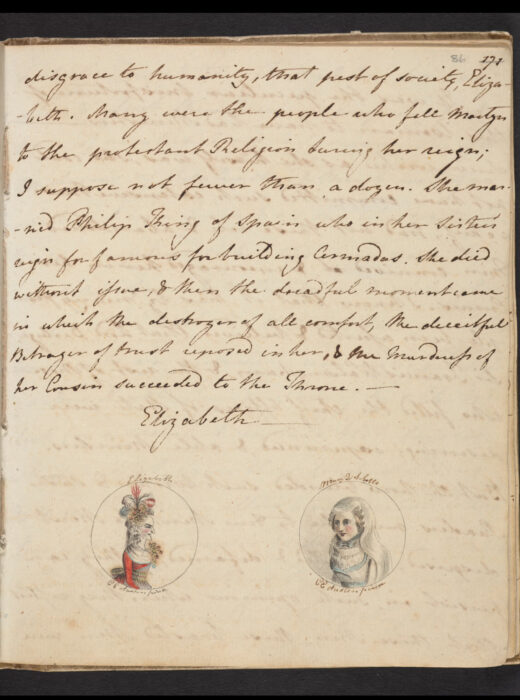 86 171
disgrace to humanity, that pest of society, Eliza-
-beth. Many were the people who fell Martyrs
to the protestant Religion during her reign;
I suppose not fewer than a dozen. She mar-
-ried Philip King of Spain who in her Sister's
reign for famous for building Armadas. She died
without issue, & then the dreadful moment came
in which the destroyer of all comfort, the deceitful
Betrayer of trust reposed in her, & the Murderess of
her Cousin succeeded to the Throne. —
Elizabeth —
Elizabeth
Mary Q of Scots
C E Austen pinx
C E Austen pinx